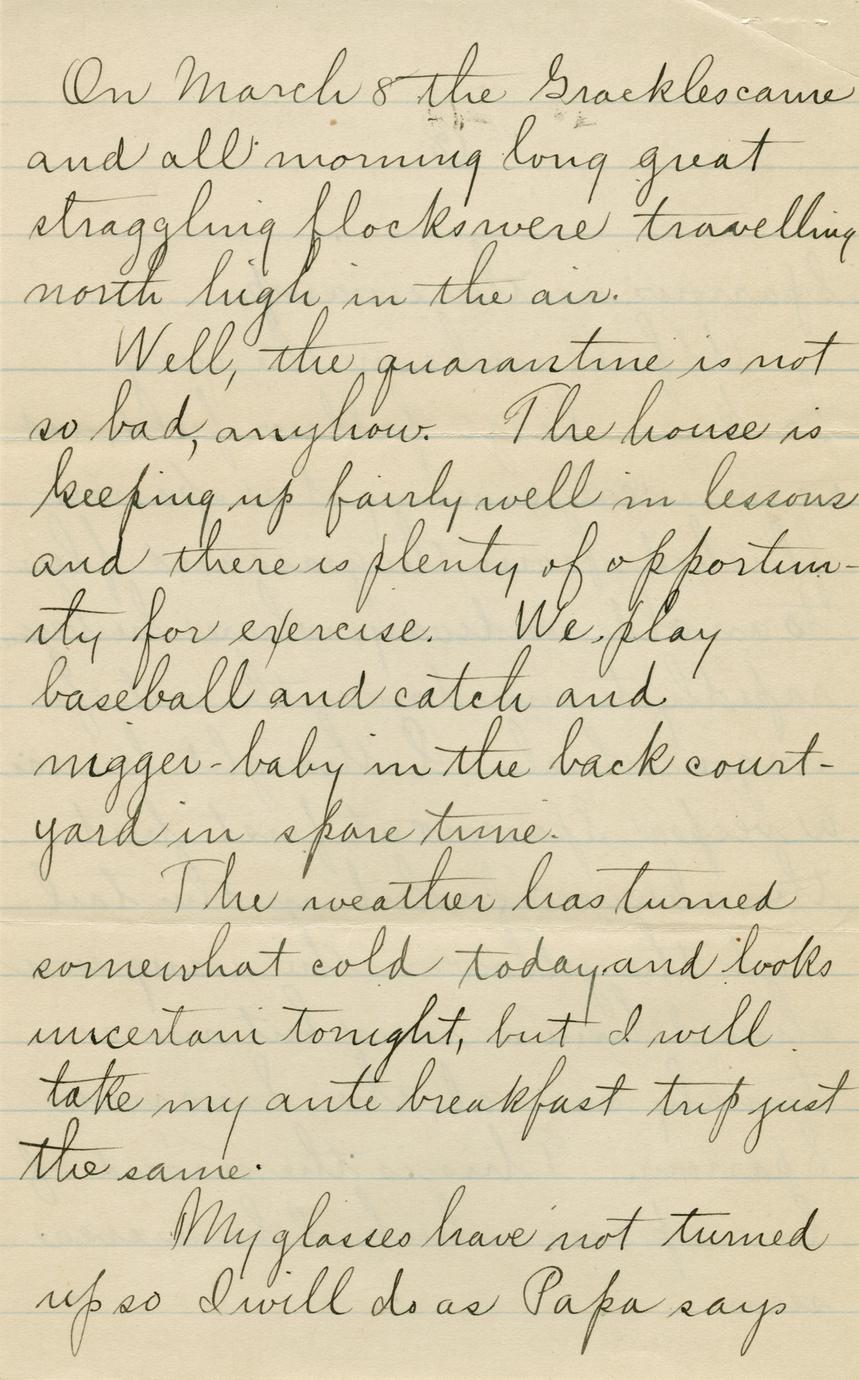 On March 8 the Grackles came
and all morning long great
straggling flocks were travelling
north high in the air.
Well, the quarantine is not
so bad, anyhow. The house is
keeping up fairly well in lessons
and there is plenty of opportun-
ity for exercise. We play
baseball and catch and
nigger-baby in the back court-
yard in spare time.
The weather has turned
somewhat cold today and looks
uncertain tonight, but I will
take my ante breakfast trip just
the same.
My glasses have not turned
up so I will do as Papa says